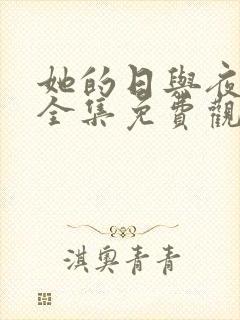 她的日與夜
全集免費觀
淇奧青青